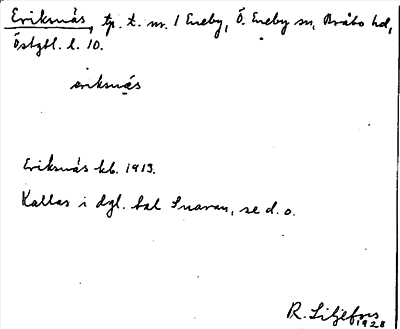 Eriksnäs, tp. t. nr. 1 Eneby, Ö. Eneby sn, Bråbo hd,
Östgtl. l. 10.
eriksnäs
Eriksnäs kb. 1913.
Kallas i dgl. tal Snaran, se d. o.
R. Liljefors
1928